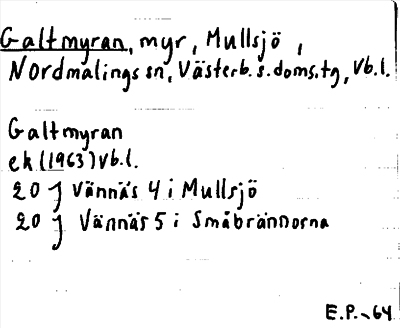 Galtmyran, myr, Mullsjö,
Nordmalings sn, Västerb.s.doms.tg, Vb.l.
Galtmyran
ek (1963) Vb.l.
20 J Vännäs 4 i Mullsjö
20 J Vännäs 5 i Småbrännorna
E.P.-64